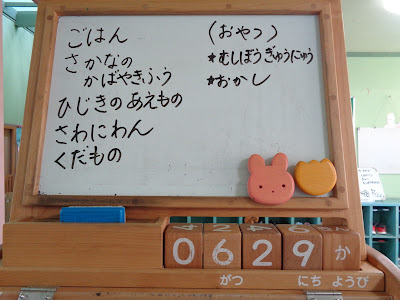 ごはん
さかなの
かばやきふう
ひじきのあえもの
さわにわん
くだもの
(おやつ)
*むしぼうぎゅうにゅう
*おかし
0629か
がつ にち ようび